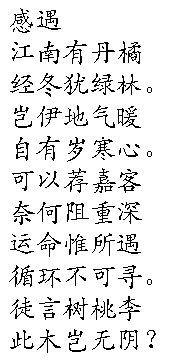 感遇
江南有丹橘
经冬犹绿林。
岂伊地气暖
自有岁寒心。
可以荐嘉客
奈何阻重深
运命惟所遇
循环不可寻。
徒言树桃李
此木岂无阴？